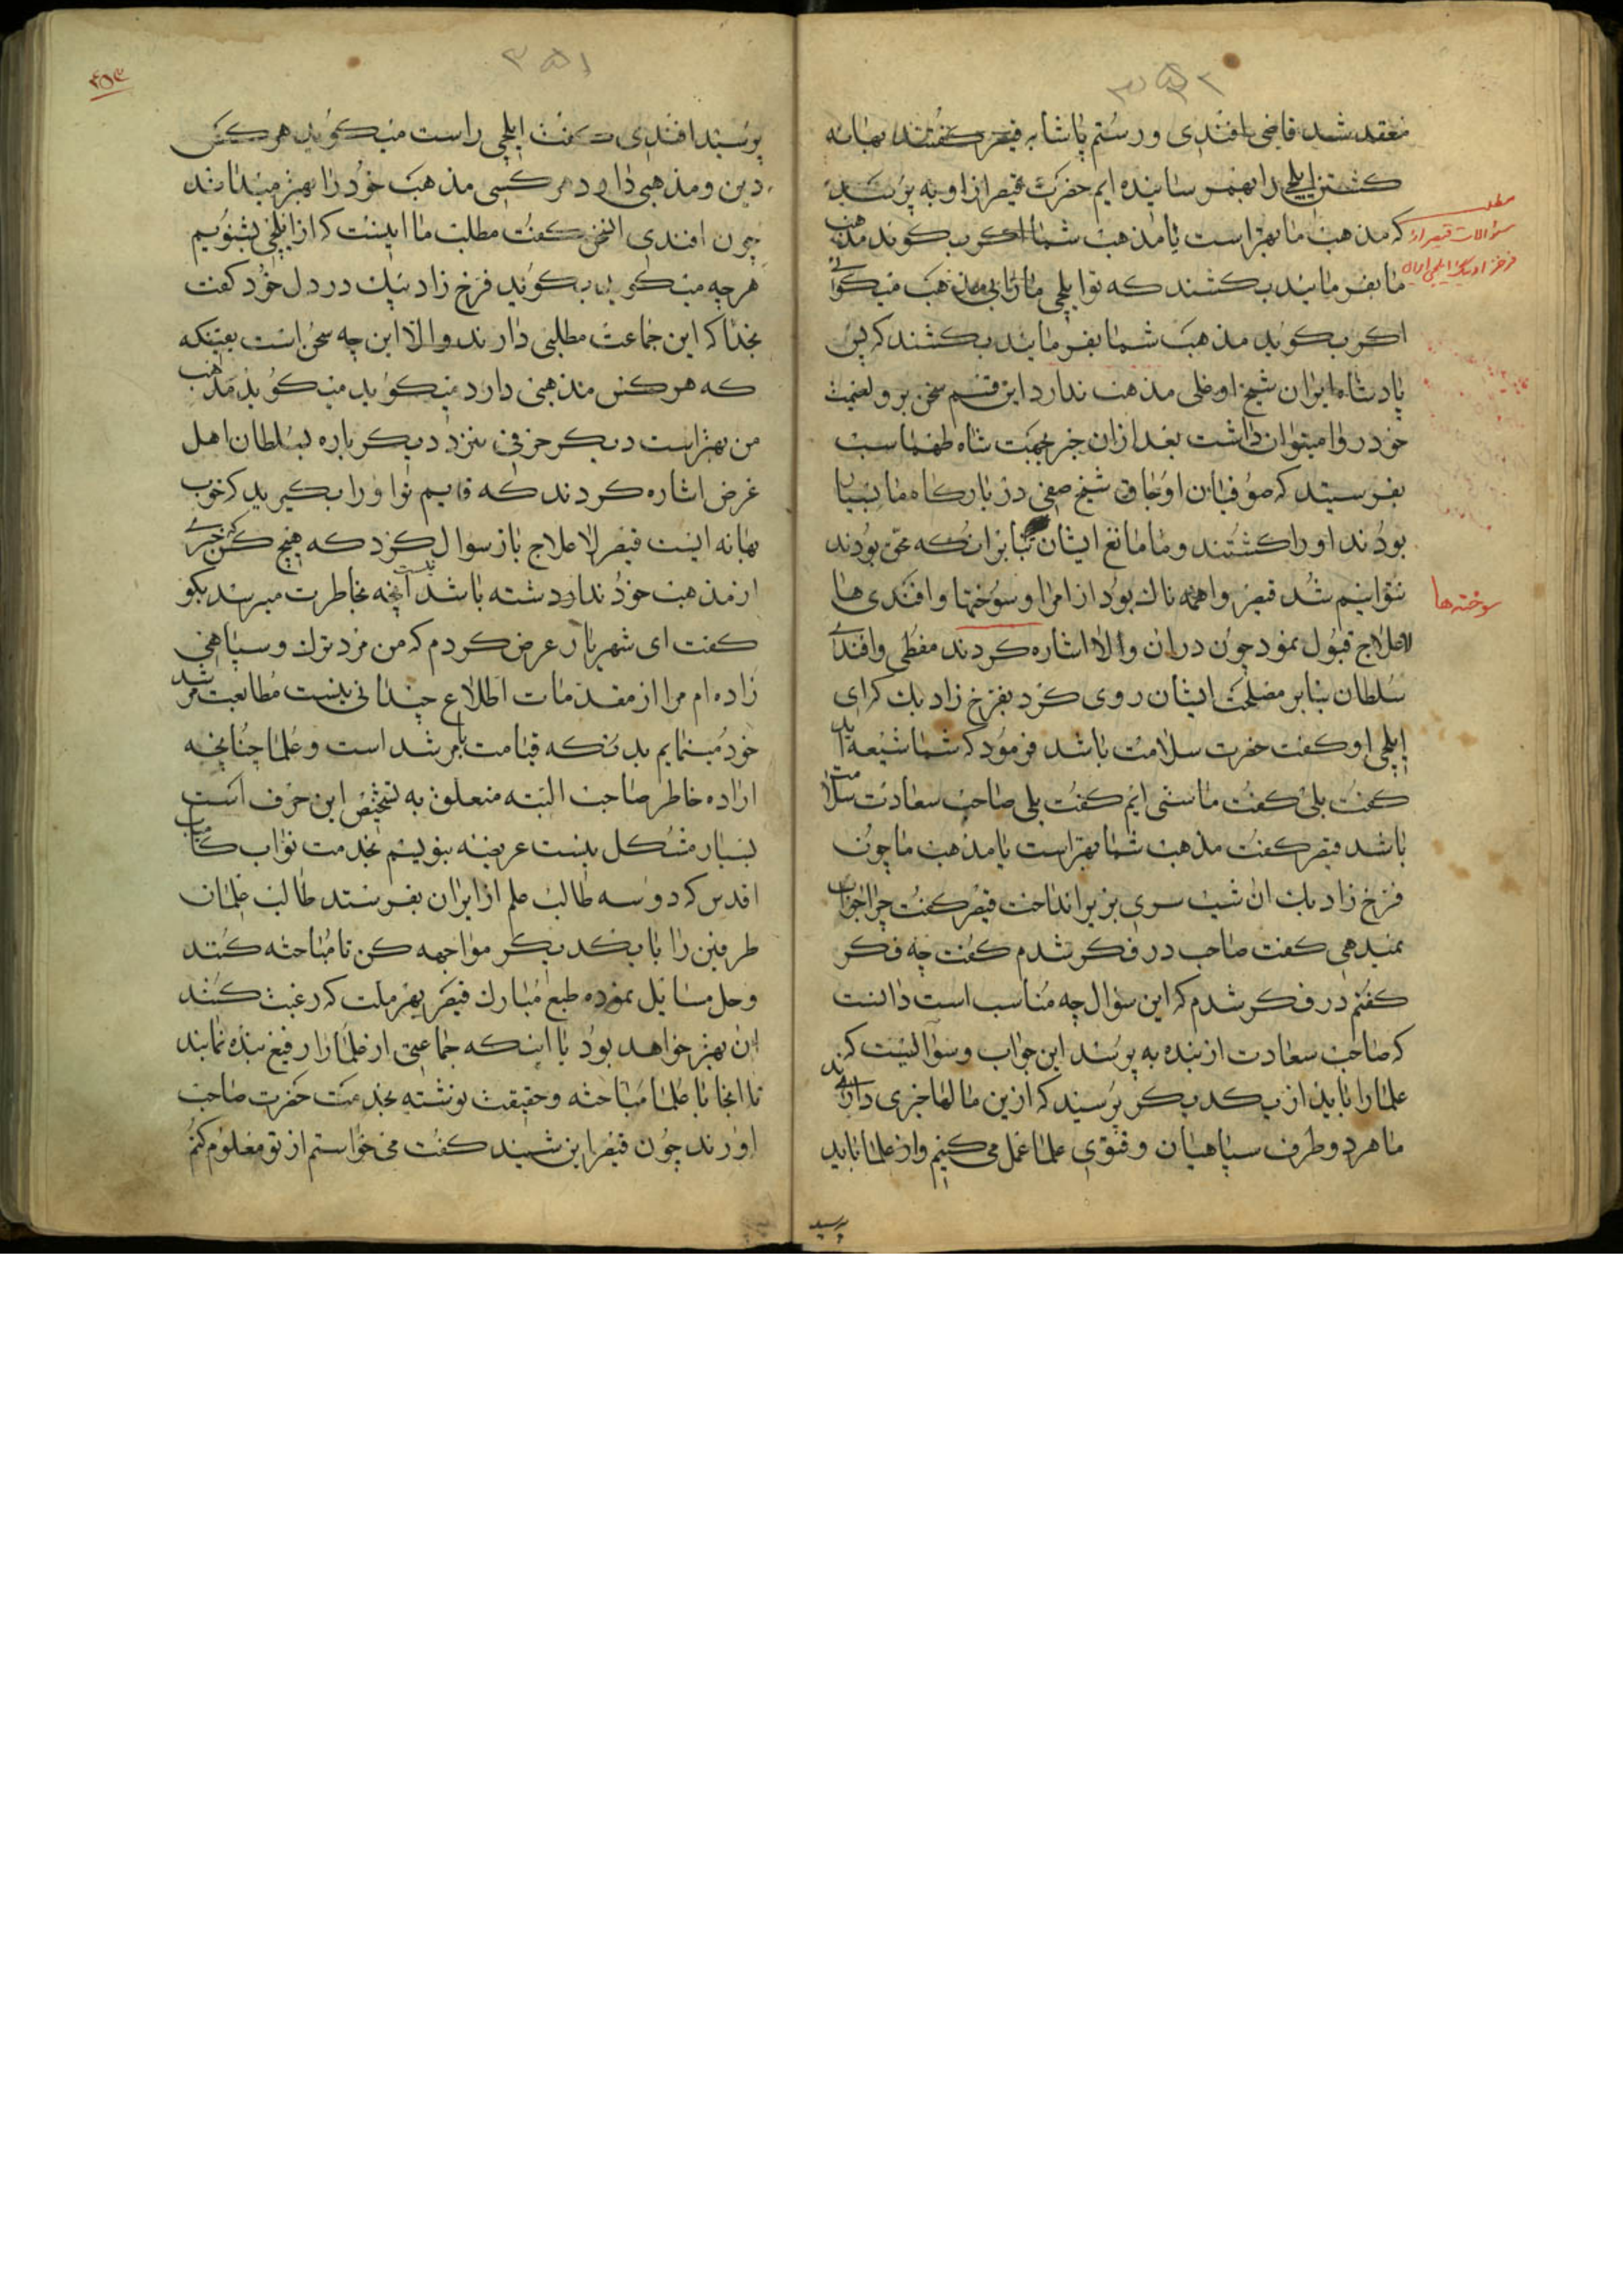 ۳۵۲
منعقد شد قاضی افندی و رستم پاشا به قیصر گفتند بهانه
کشتن ایلچی را بهم رسانیده ایم حضرت قیصر از او به پرسید
که مذهب ما بهتر است یا مذهب شما اگر بگوید مذهب
ما بفرمائید بکشند که تو ایلچی ما را بی مذهب میگوئی
اگر بگوید مذهب شما بفرمائید بکشند که پس
پادشاه ایران شیخ اوغلی مذهب ندارد این قسم سخن بر ولینعمت
خود روا میتوان داشت بعد از آن خبر بجهت شاه طهماسب
بفرستید که صوفیان اوجاق شیخ صفی در بارگاه ما
بودند او را کشتند و ما مانع ایشان بنابرانکه محق بودند
نتوانیم شد قیصر واهمه ناک بود از امرا و سوختها و افندی ها
لاعلاج قبول نمود چون در آن والا اشاره کردند مفطی و افندی
سلطان بنابر مصلحت ایشان روی کرد بفرخ زاد بیک که ای
ایلچی او گفت حضرت سلامت باشد فرمود که شما شیعه اید
گفت بلی گفت ما سنی ایم گفت بلی صاحب سعادت سلامت
باشد قیصر گفت مذهب شما بهتر است یا مذهب ما چون
فرخ زاد بیک ان شنید سری بزیر انداخت قیصر گفت چرا جواب
نمیدهی گفت صاحب در فکر شدم گفت چه فکر
گفتم در فکر شدم که این سؤال چه مناسب است دانست
که صاحب سعادت از بنده به پرسند این جواب و سؤالیست که
علما را باید از یکدیگر پرسید که ازین مالها خبری دارند
ما هر دو طرف سپاهیان و فتوی علما عمل می کنیم و از علما باید
پرسید
مطلب
سؤالات قیصر از
فرخزاد بیک ایلچی ایران
سوخته ها
۳۵۱
۴۵۳
پرسید افندی گفت ایلچی راست میگوید هر کس
دین و مذهبی دارد هر کسی مذهب خود را بهتر میداند
چون افندی الخ گفت مطلب ما اینست که از ایلچی بشنویم
هرچه میگوید بگوید فرخ زاد بیک در دل خود گفت
بخدا که این جماعت مطلبی دارند والا این چه سخن است بعینکه
که هر کس مذهبی دارد میگوید میگوید مذهب
من بهتر است دیگر حرفی نزد دیگر باره بسلطان اهل
غرض اشاره کردند که قایم تو او را بگیرید که خوب
بهانه ایست قیصر لاعلاج باز سوال کرد که هیچ کس خبری که
از مذهب خود ندارد دشته باشد نیست آنچه بخاطرت میرسد بگو
گفت ای شهریار عرض کردم که من مرد ترک و سپاهی
زاده ام مرا از مقدمات اطلاع چندانی نیست متابعت مرشد
خود مینمایم بدینکه قیامت با مرشد است و علما چنانچه
اراده خاطر صاحب البته متعلق به تشخیص این حرف است
بسیار مشکل نیست عریضه بنویسم بخدمت نواب کامیاب
اقدس که دو سه طالب علم از ایران بفرستد طالب علمان
طرفین را با یکدیگر مواجهه کن تا مباحثه کنند
و حل مسایل نموده طبع مبارک قیصر بهر ملت که رغبت کند
ان بهتر خواهد بود یا اینکه جماعتی از علما را رفیق بنده نمایند
تا انجا با علما مباحثه و حقیقت نوشته بخدمت حضرت صاحب
اورند چون قیصر این شنید گفت می خواستم از تو معلوم کنم